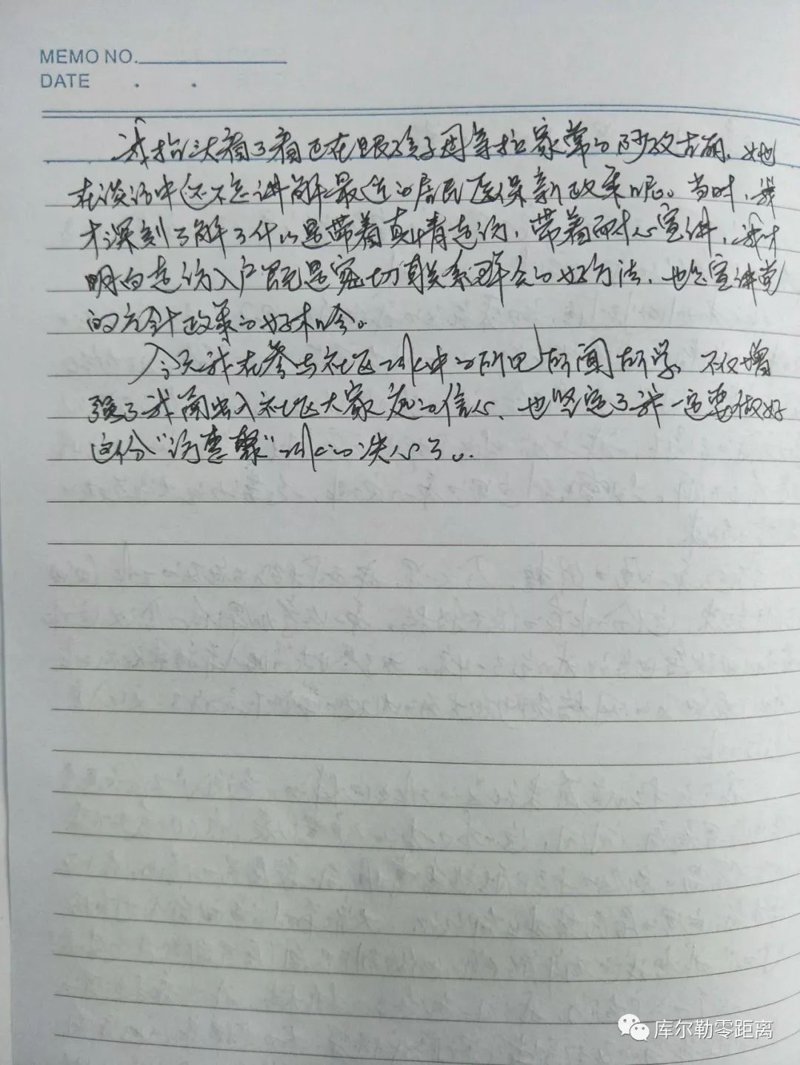 MEMO NO.
DATE . .
我抬头看了看正在跟孩子周等拉家常的阿孜古丽,她
在谈话中还不忘讲解最近的居民医保新政策呢。当时,我
才深刻了解了什么是带着真情走访,带着耐心宣讲,我才
明白走访入户既是密切联系群众的好方法,也是宣讲党
的方针政策的好机会。
今天我在参与社区工作中的所见所闻所学,不仅增
强了我融入社区大家庭的信心,也坚定了我一定要做好
这份“访惠聚”工作的决心了。
库尔勒零距离